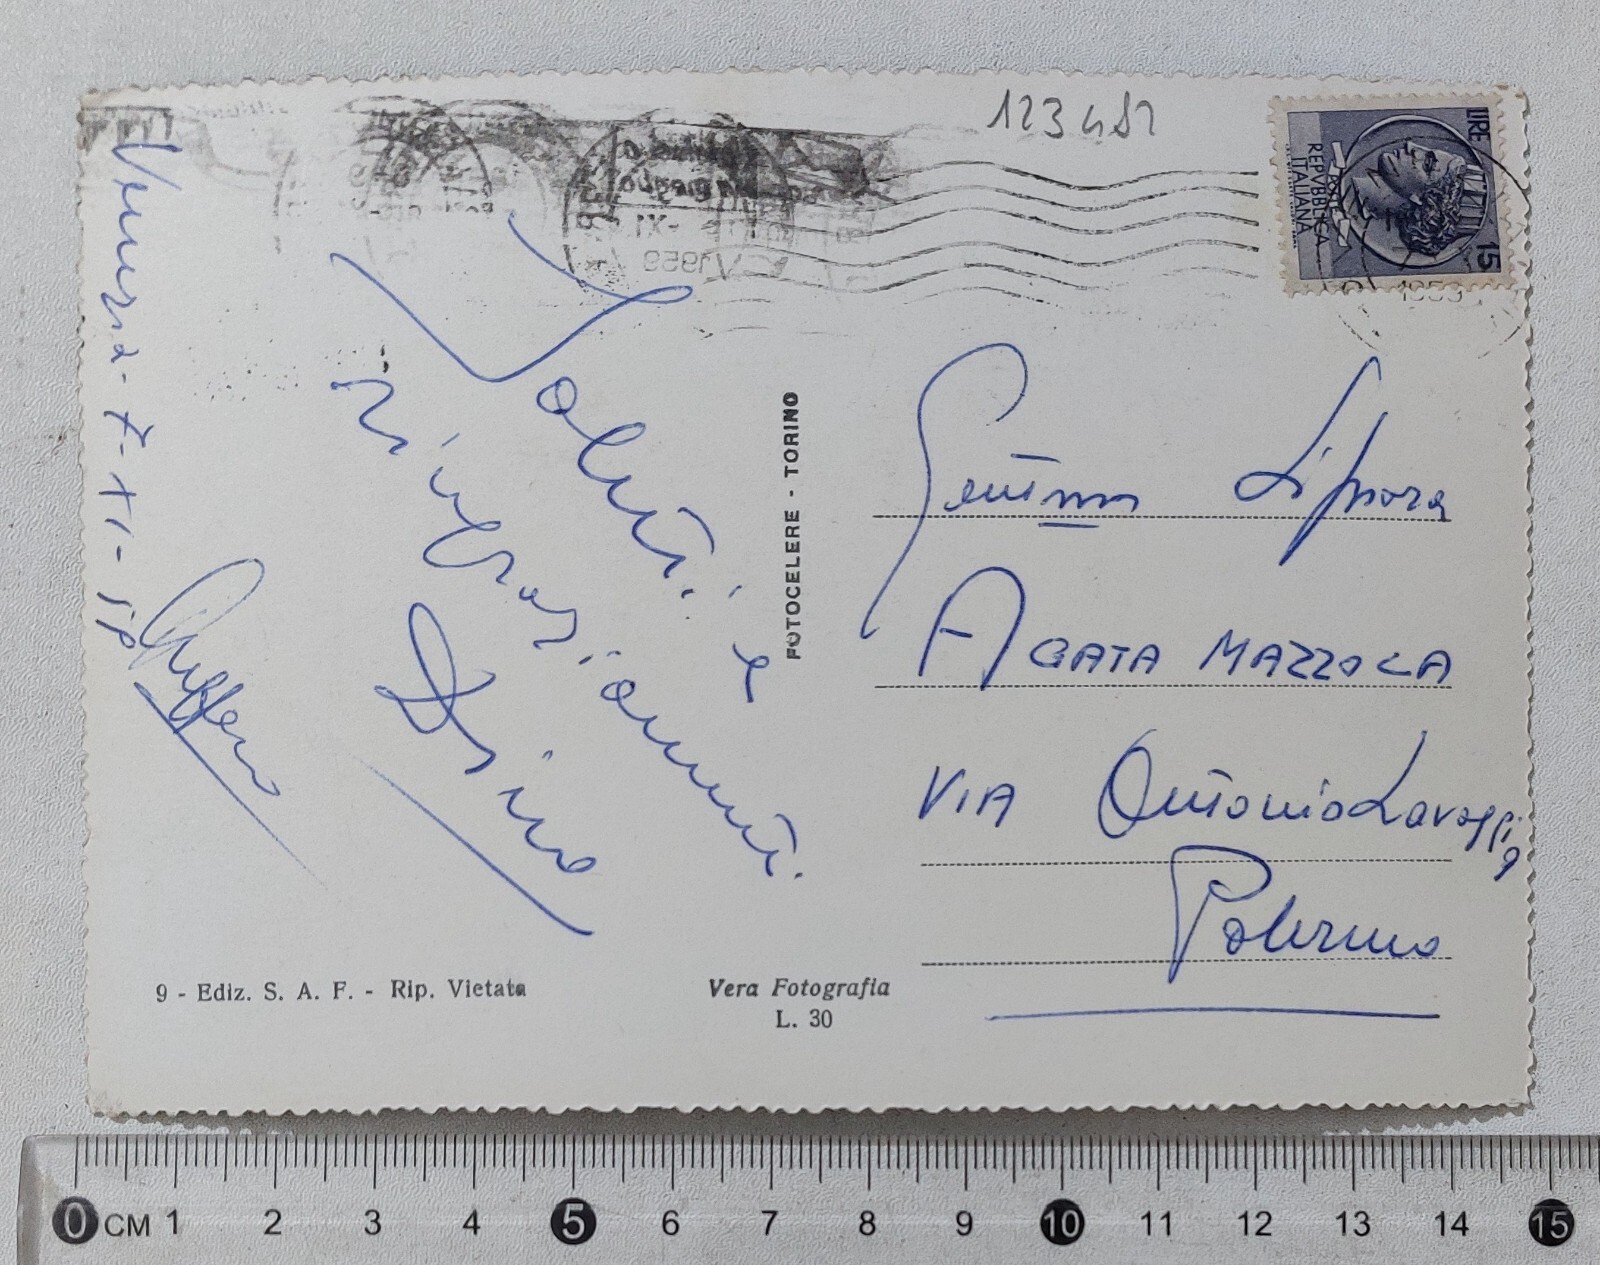 123482
LIRE 15
REPVBBLICA
ITALIANA
1959
1959
Venezia - 7-XI-59
Saluti e
ringraziamenti.
Dino
FOTOCELERE - TORINO
Gentma Signora
AGATA MAZZOLA
VIA Antonio Lavaggi
9
Palermo
9 - Ediz. S. A. F. - Rip. Vietata
Vera Fotografia
L. 30
0 CM 1 2 3 4 5 6 7 8 9 10 11 12 13 14 15